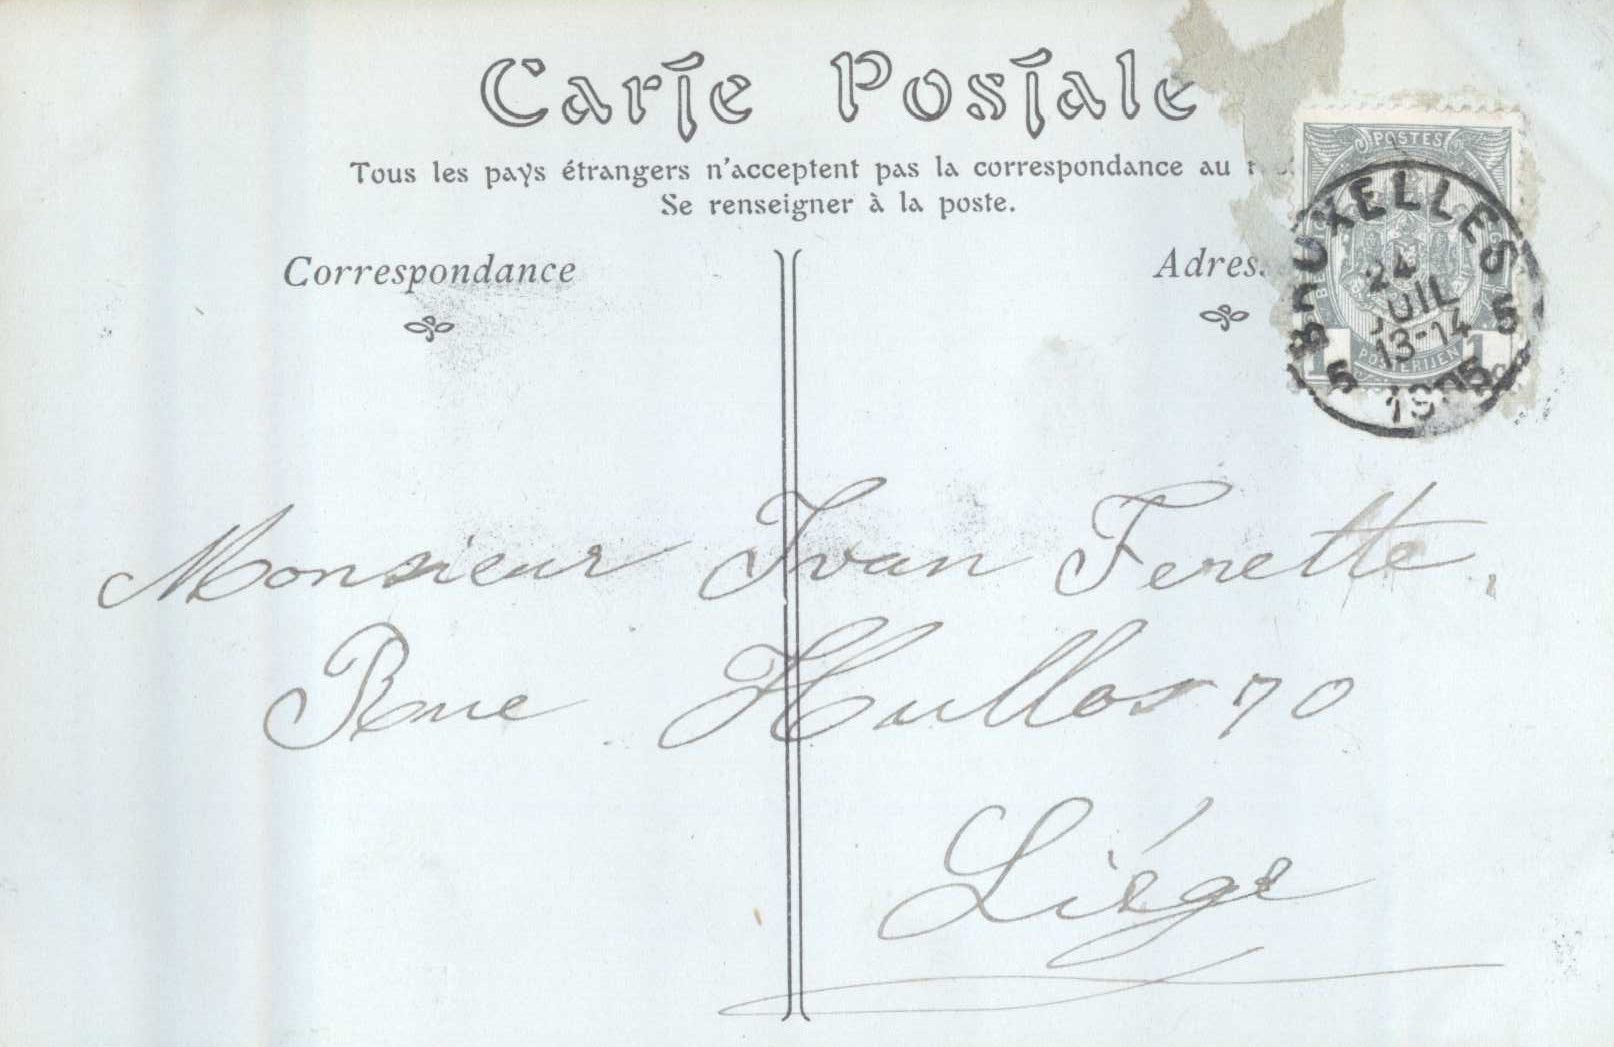 Carte Postale
Tous les pays étrangers n'acceptent pas la correspondance au
Se renseigner à la poste.
Correspondance
Adres
POSTES
POSTERIJEN
1 1
BRUXELLES
24
JUIL
13-14
1905
5 5
Monsieur Ivan Ferette.
Rue Hullos 70
Liége